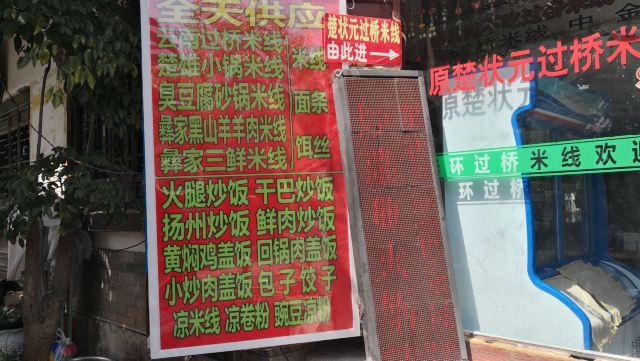 全天供应
云南过桥米线
楚雄小锅米线
臭豆腐砂锅米线
彝家黑山羊羊肉米线
彝家三鲜米线
米线
面条
饵丝
火腿炒饭 干巴炒饭
扬州炒饭 鲜肉炒饭
黄焖鸡盖饭 回锅肉盖饭
小炒肉盖饭 包子 饺子
凉米线 凉卷粉 豌豆凉粉
楚状元过桥米线
由此进→
原楚状元过桥米
原楚状元
环过桥米线欢迎
环过桥